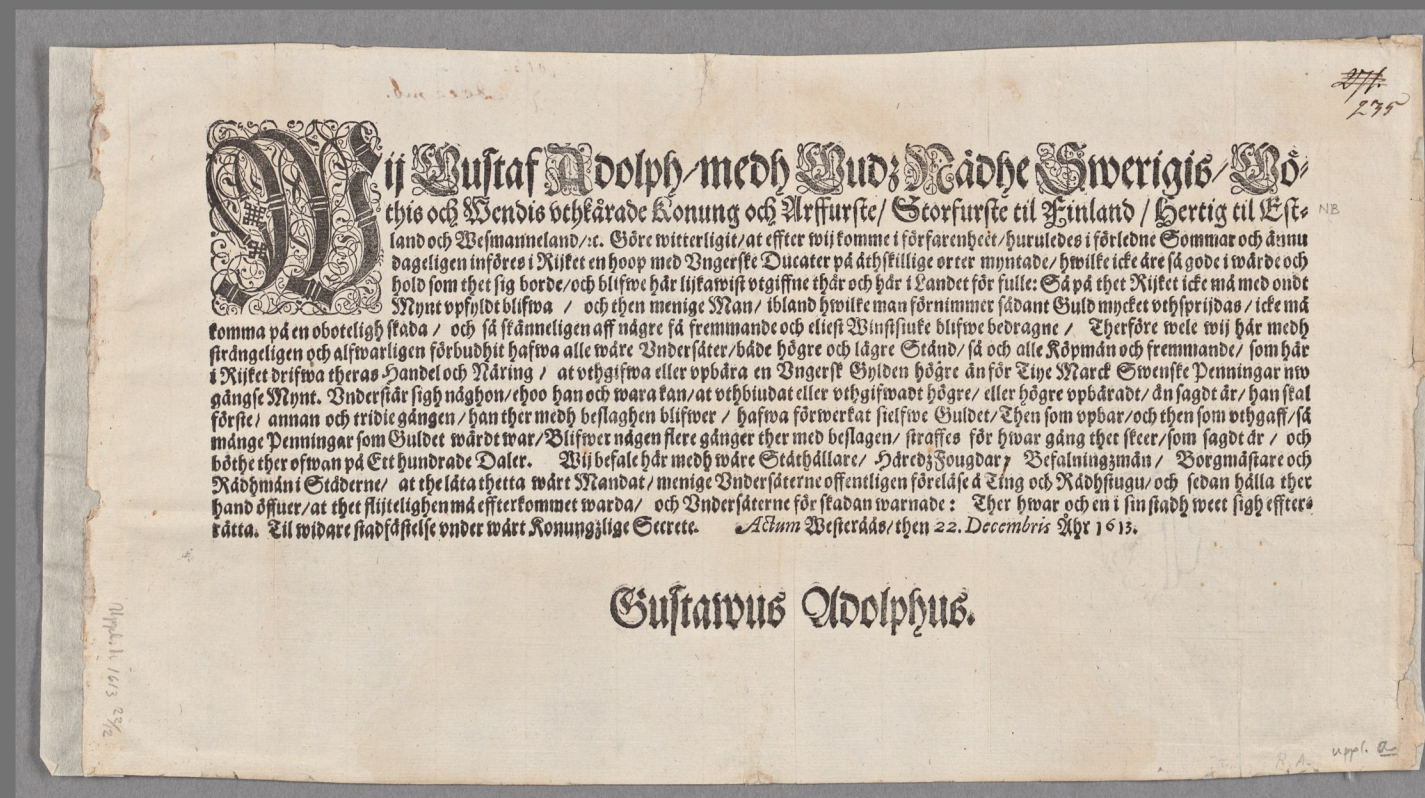 271.
235
Wij Gustaf Adolph/medh Gudz Nådhe Swerigis/ Gö-
this och Wendis vthkårade Konung och Arffurste/ Storfurste til Finland / Hertig til Est-
NB
land och Wesmanneland/:c. Göre witterligit/at effter wij komme i förfarenheet/huruledes i förledne Sommar och ännu
dageligen införes i Rijket en hoop med Vngerske Ducater på åthskillige orter myntade/hwilke icke äre så gode i wärde och
hold som thet sig borde/och blifwe här lijkawist vtgiffne thår och här i Landet för fulle: Så på thet Rijket icke må med ondt
Mynt vpfyldt blifwa / och then menige Man/ ibland hwilke man förnimmer sådant Guld mycket vthsprijdas/ icke må
komma på en oboteligh skada / och så skänneligen aff någre få fremmande och eliest Winstsiuke blifwe bedragne / Therföre wele wij här medh
strängeligen och alfwarligen förbudhit hafwa alle wåre Vndersåter/både högre och lägre Stånd/ så och alle Köpmän och fremmande/ som här
i Rijket drifwa theras Handel och Näring / at vthgifwa eller vpbära en Vngersk Gylden högre än för Tiye Marck Swenske Penningar nw
gångse Mynt. Vnderstår sigh någhon/ehoo han och wara kan/at vthbiudat eller vthgifwadt högre/ eller högre vpbäradt/än sagdt är/ han skal
förste/ annan och tridie gången/ han ther medh beslaghen blifwer / hafwa förwerkat sielfwe Guldet/Then som vpbar/och then som vthgaff/så
månge Penningar som Guldet wärdt war/Blifwer någen flere gånger ther med beslagen/ straffes för hwar gång thet skeer/som sagdt är / och
böthe ther ofwan på Ett hundrade Daler. Wij befale här medh wåre Ståthållare/ HäredzFougdar/ Befalningzmän/ Borgmästare och
Rådhmän i Städerne/ at the låta thetta wårt Mandat/ menige Vndersåterne offentligen föreläse å Ting och Rådhstugu/och sedan hålla ther
hand öffuer/at thet flijtelighen må effterkommet warda/ och Vndersåterne för skadan warnade: Ther hwar och en i sin stadh weet sigh effter-
rätta. Til widare stadfästelse vnder wårt Konungzlige Secrete. Actum Westeråås/then 22. Decembris Åhr 1613.
Gustawus Adolphus.
Uppl. 1. 1613 22/12
R. A.
uppl. a